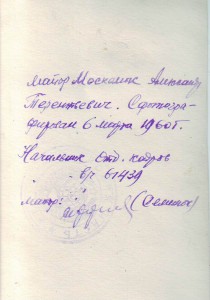 майор Москалик Александр
Терентьевич. Сфотогра-
фирован 6 марта 1960 г.
Начальник отд. кадров
в/ч 61439
майор: